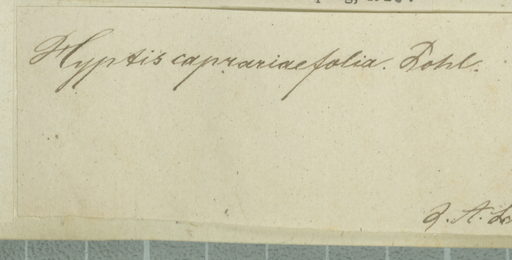 Hyptis caprariaefolia. Pohl.